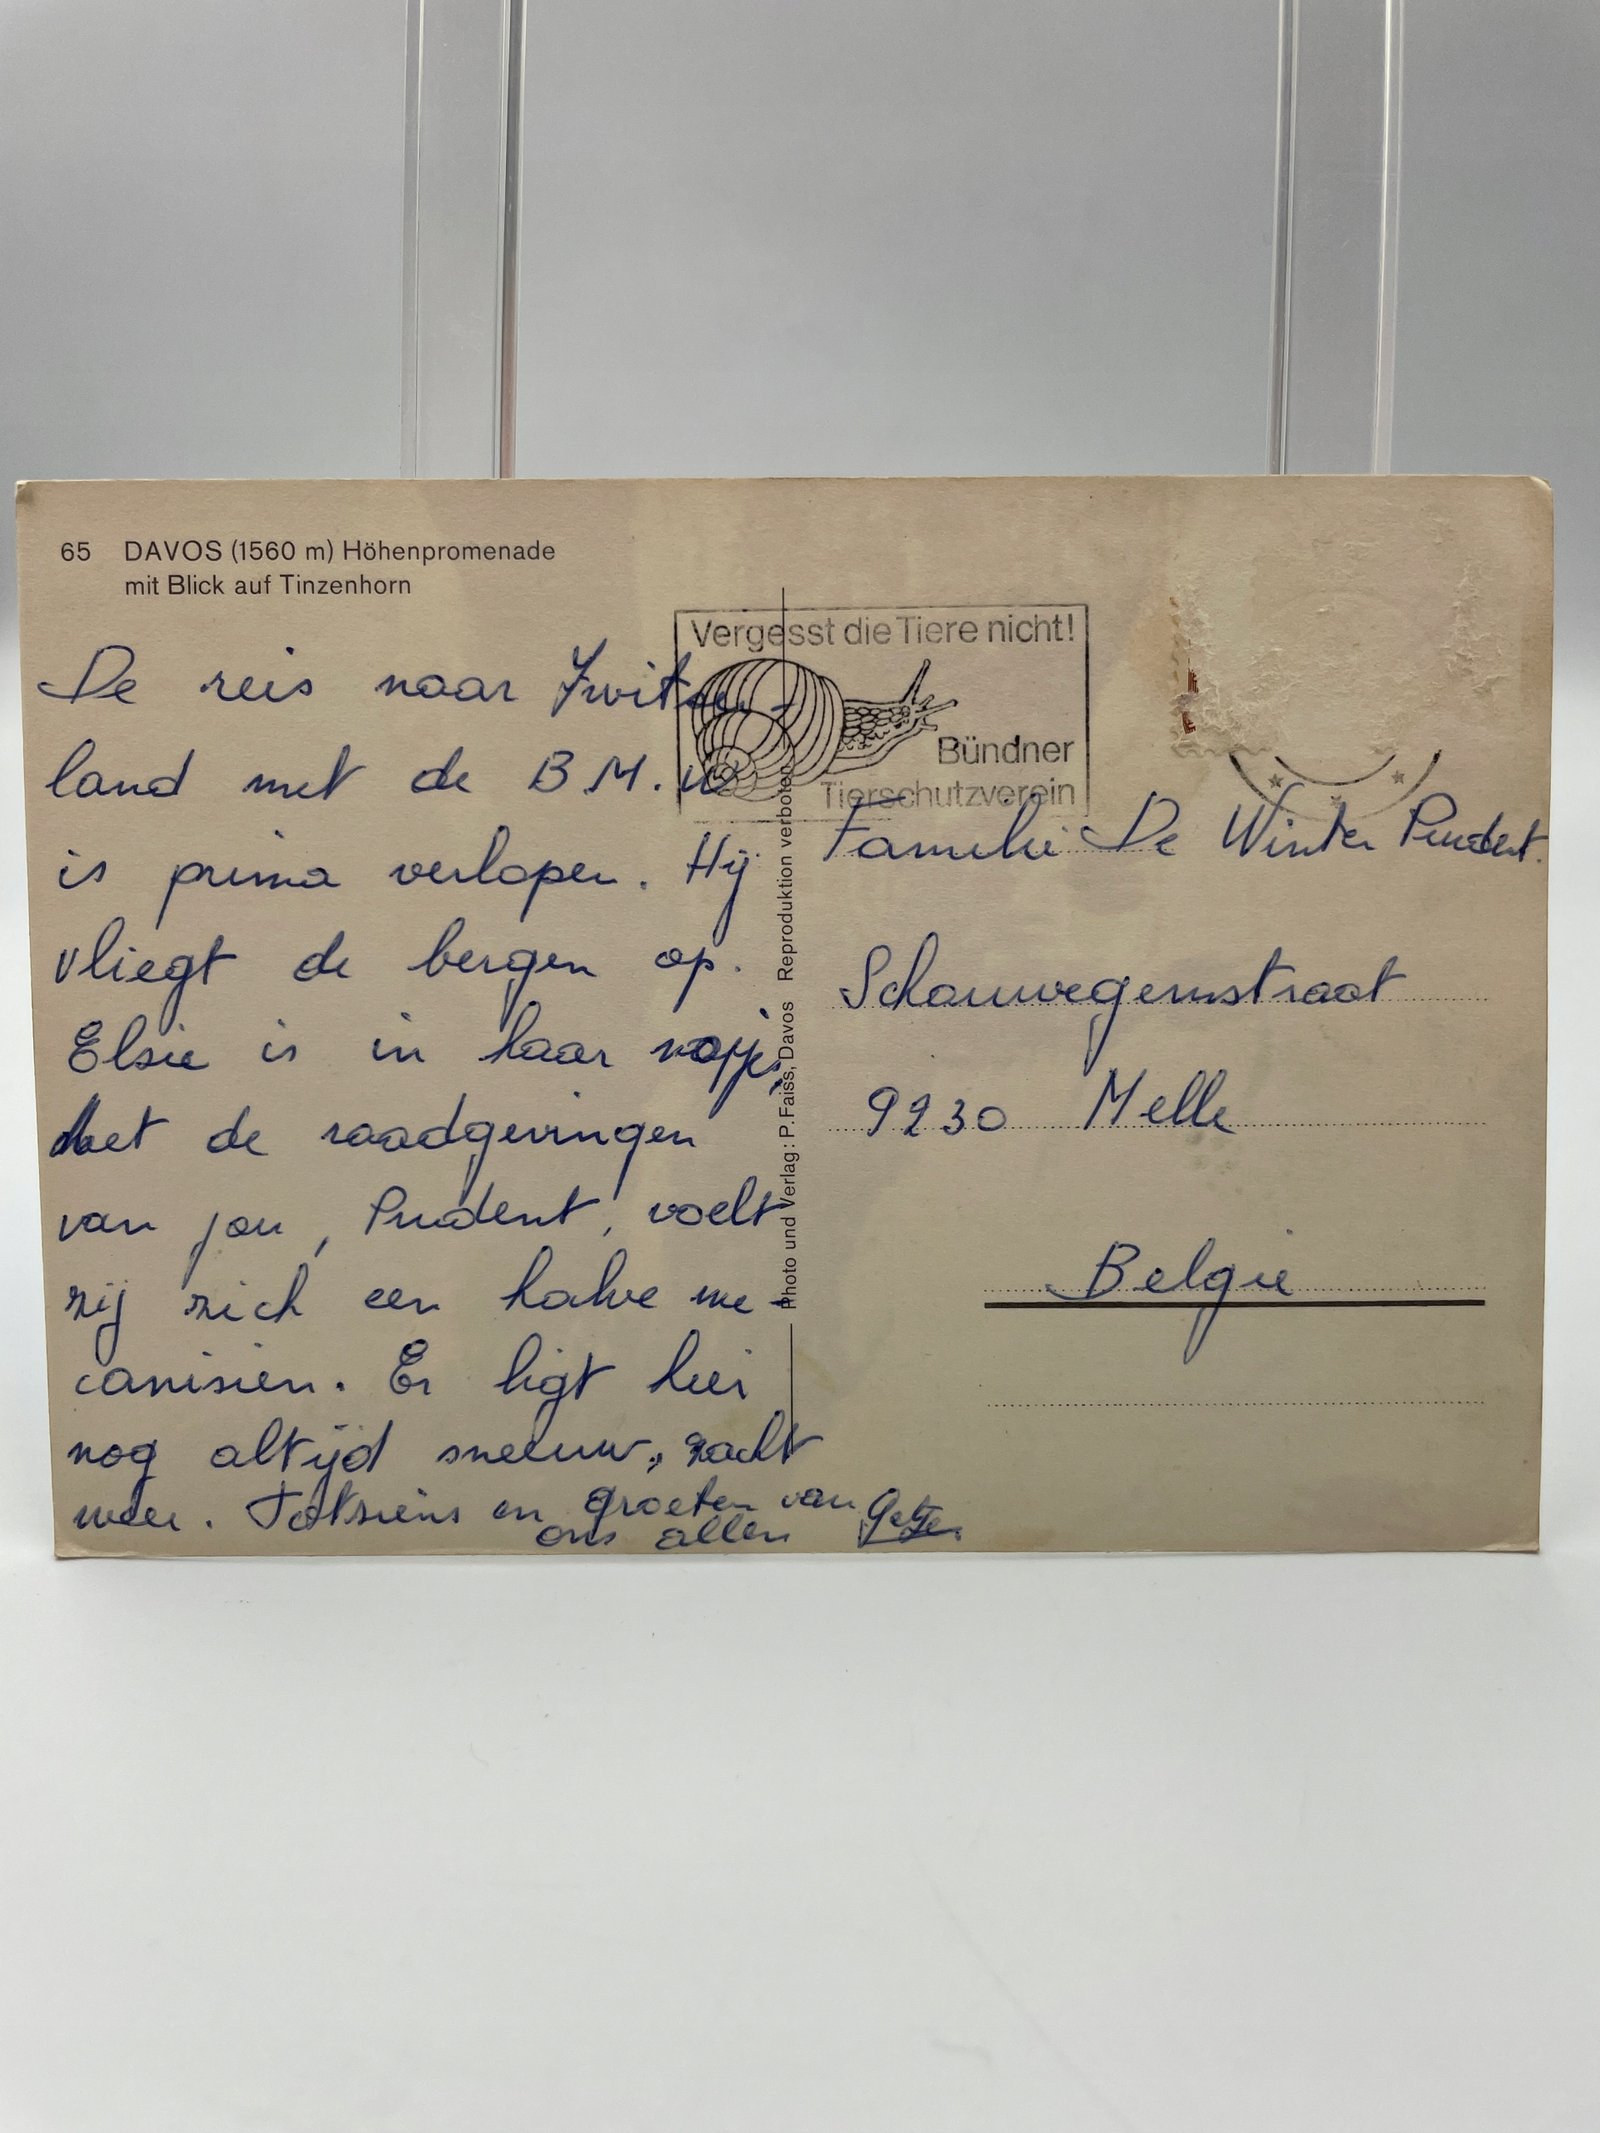 65 DAVOS (1560 m) Höhenpromenade
mit Blick auf Tinzenhorn
Vergesst die Tiere nicht!
Bündner
Tierschutzverein
De reis naar Zwitser-
land met de B.M.W
is prima verlopen. Hij
vliegt de bergen op.
Elsie is in haar nopjes,
Met de raadgevingen
van jou, Prudent, voelt
zij zich een halve me-
canisien. Er ligt hier
nog altijd sneeuw, zacht
weer. Totsiens en groeten van
ons allen
Photo und Verlag: P. Faiss, Davos Reproduktion verboten
Familie De Winter Prudent.
Schauwegemstraat
9230 Melle
Belgie